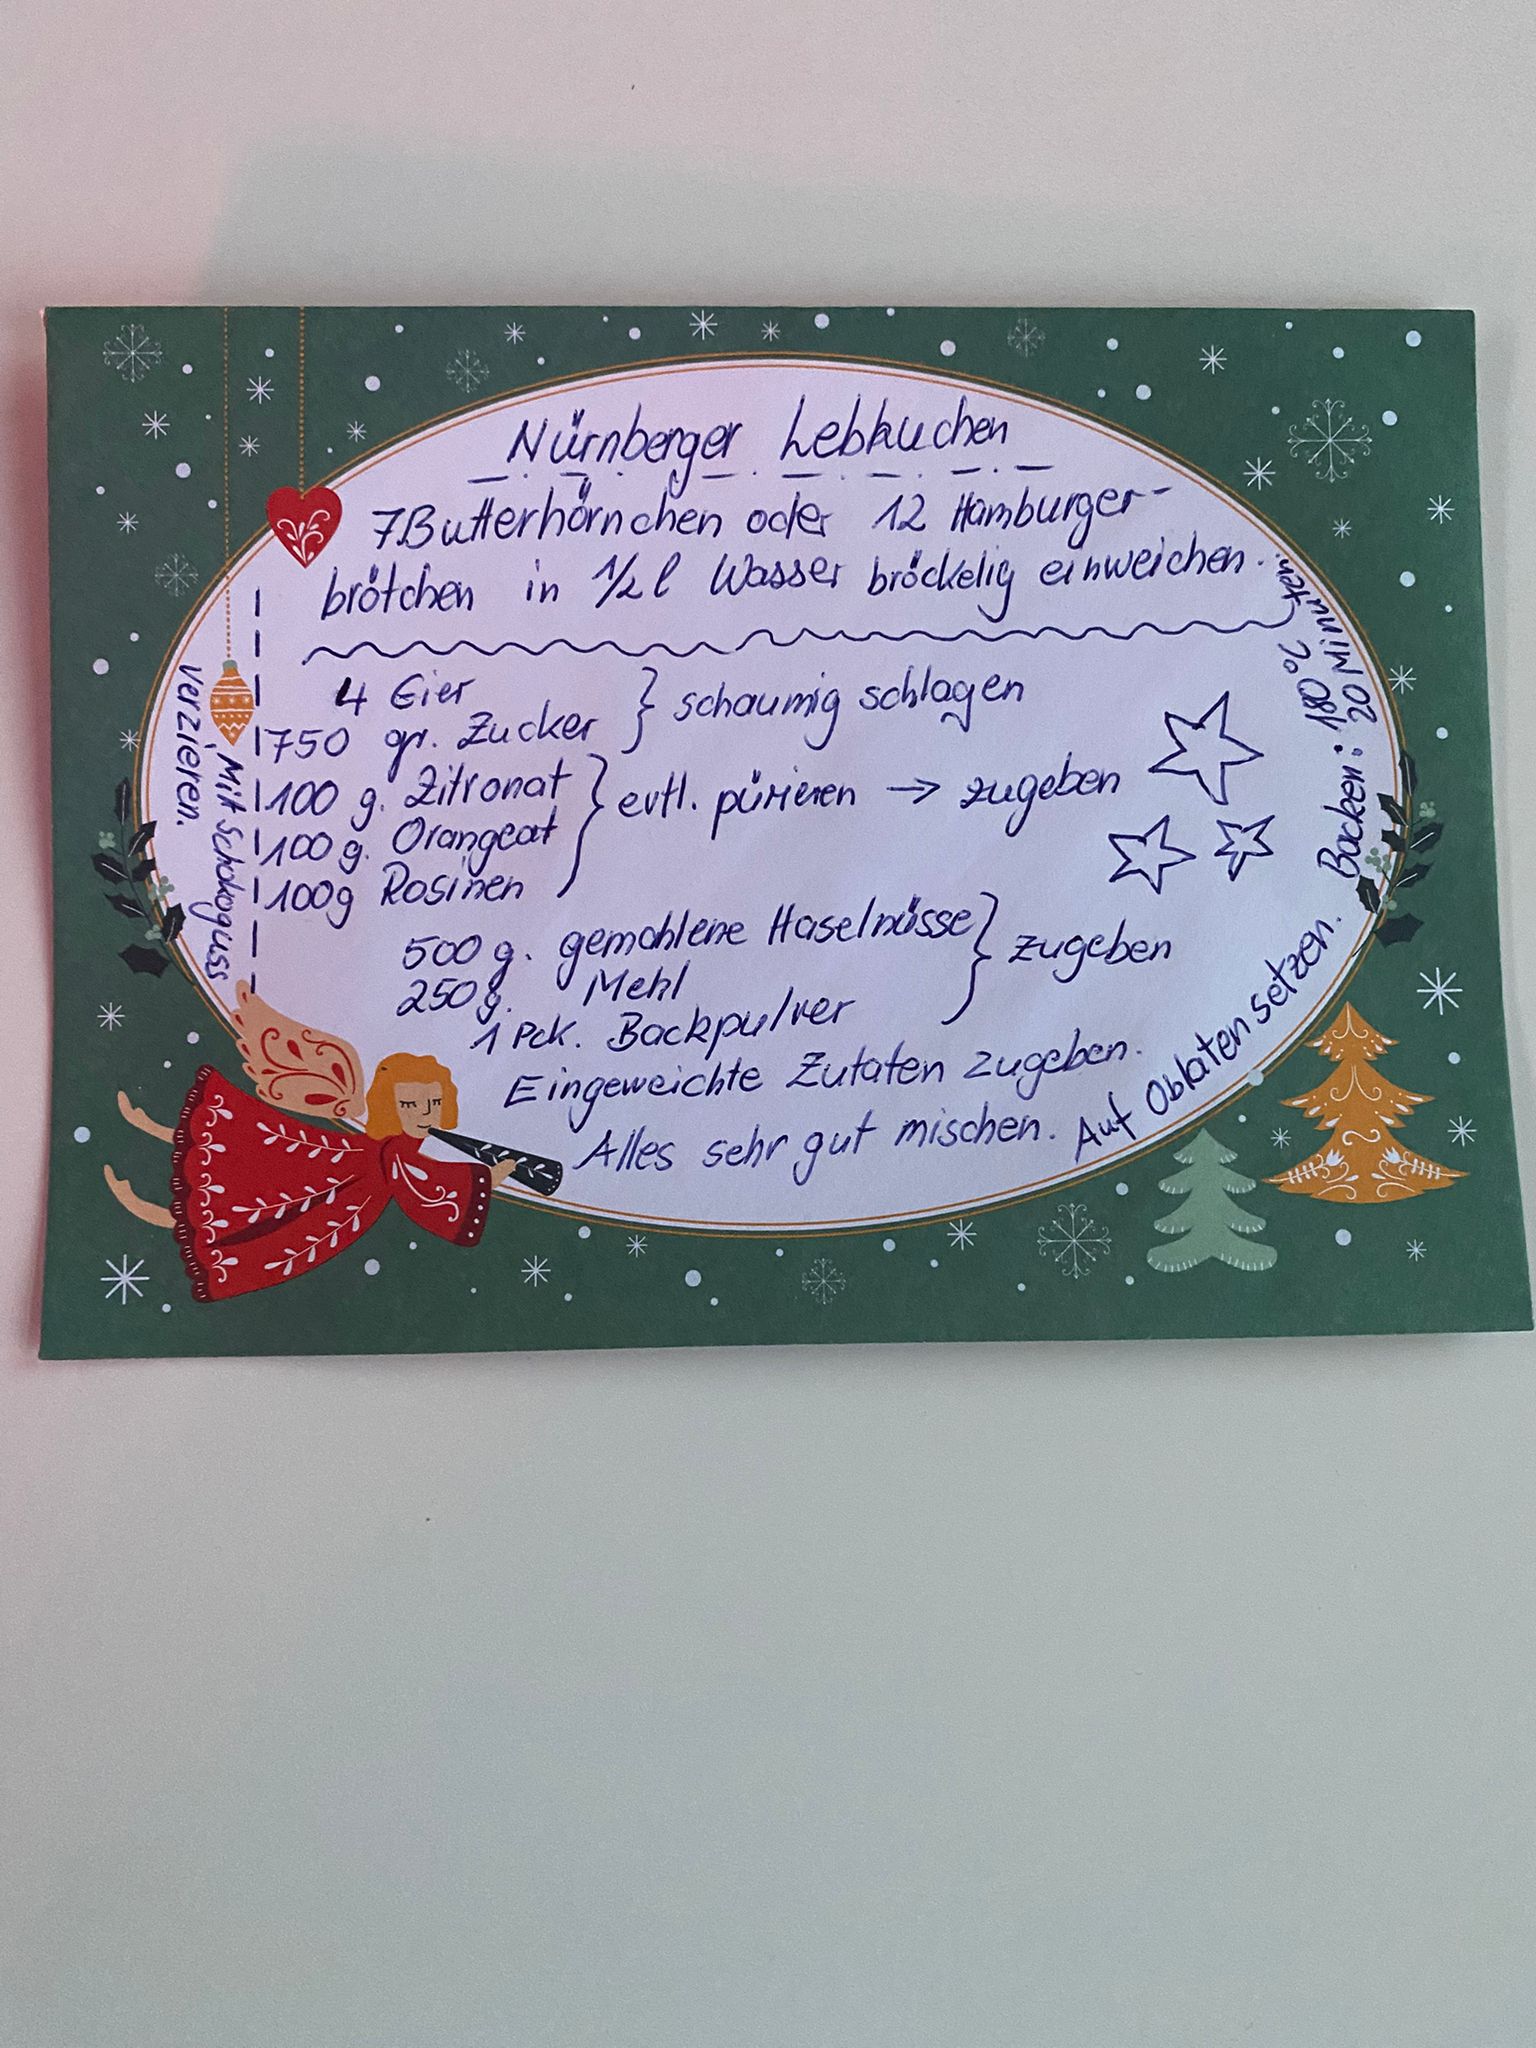 Nürnberger Lebkuchen
7 Butterhörnchen oder 12 Hamburger-
brötchen in 1/2 l Wasser bröckelig einweichen.
4 Eier
750 gr. Zucker } schaumig schlagen
100 g. Zitronat
100 g. Orangeat } evtl. pürieren → zugeben
100g Rosinen
500 g. gemahlene Haselnüsse
250 g. Mehl } zugeben
1 Pck. Backpulver
Eingeweichte Zutaten zugeben.
Alles sehr gut mischen. Auf Oblaten setzen.
Backen: 180 °
20 Minuten.
Mit Schokoguss
verzieren.